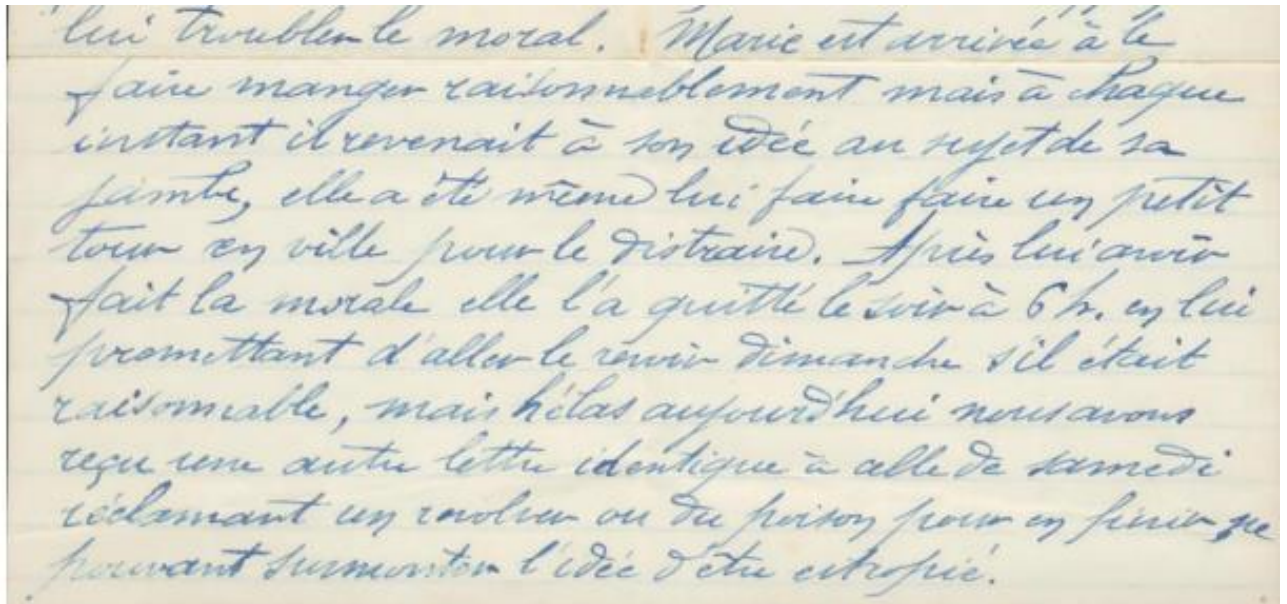 lui troubler le moral. Marie est arrivée à le
faire manger raisonneblement mais à chaque
instant il revenait à son idée au sujet de sa
jambe, elle a été même lui faire faire un petit
tour en ville pour le distraire. Après lui avoir
fait la morale elle l'a quitté le soir à 6 h. en lui
promettant d'aller le revoir dimanche s'il était
raisonnable, mais hélas aujourd'hui nous avons
reçu une autre lettre identique à celle de samedi
réclamant un revolver ou du poison pour en finir ne
pouvant surmonter l'idée d'être estropié.